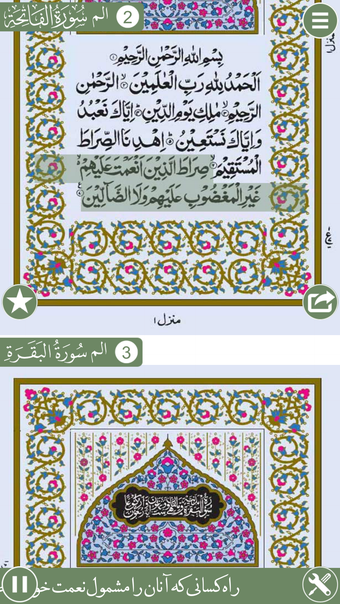 2 الم سُورَةُ الفَاتِحَة
منزل١
بِسْمِ اللهِ الرَّحْمٰنِ الرَّحِيْمِ
اَلْحَمْدُ لِلّٰهِ رَبِّ الْعٰلَمِيْنَ الرَّحْمٰنِ
الرَّحِيْمِ مٰلِكِ يَوْمِ الدِّيْنِ اِيَّاكَ نَعْبُدُ
وَاِيَّاكَ نَسْتَعِيْنُ اِهْدِنَا الصِّرَاطَ
الْمُسْتَقِيْمَ صِرَاطَ الَّذِيْنَ اَنْعَمْتَ عَلَيْهِمْ
غَيْرِ الْمَغْضُوْبِ عَلَيْهِمْ وَلَا الضَّآلِّيْنَ
منزل١
3 الم سُورَةُ البَقَرَة
راه کسانی که آنان را مشمول نعمت خو